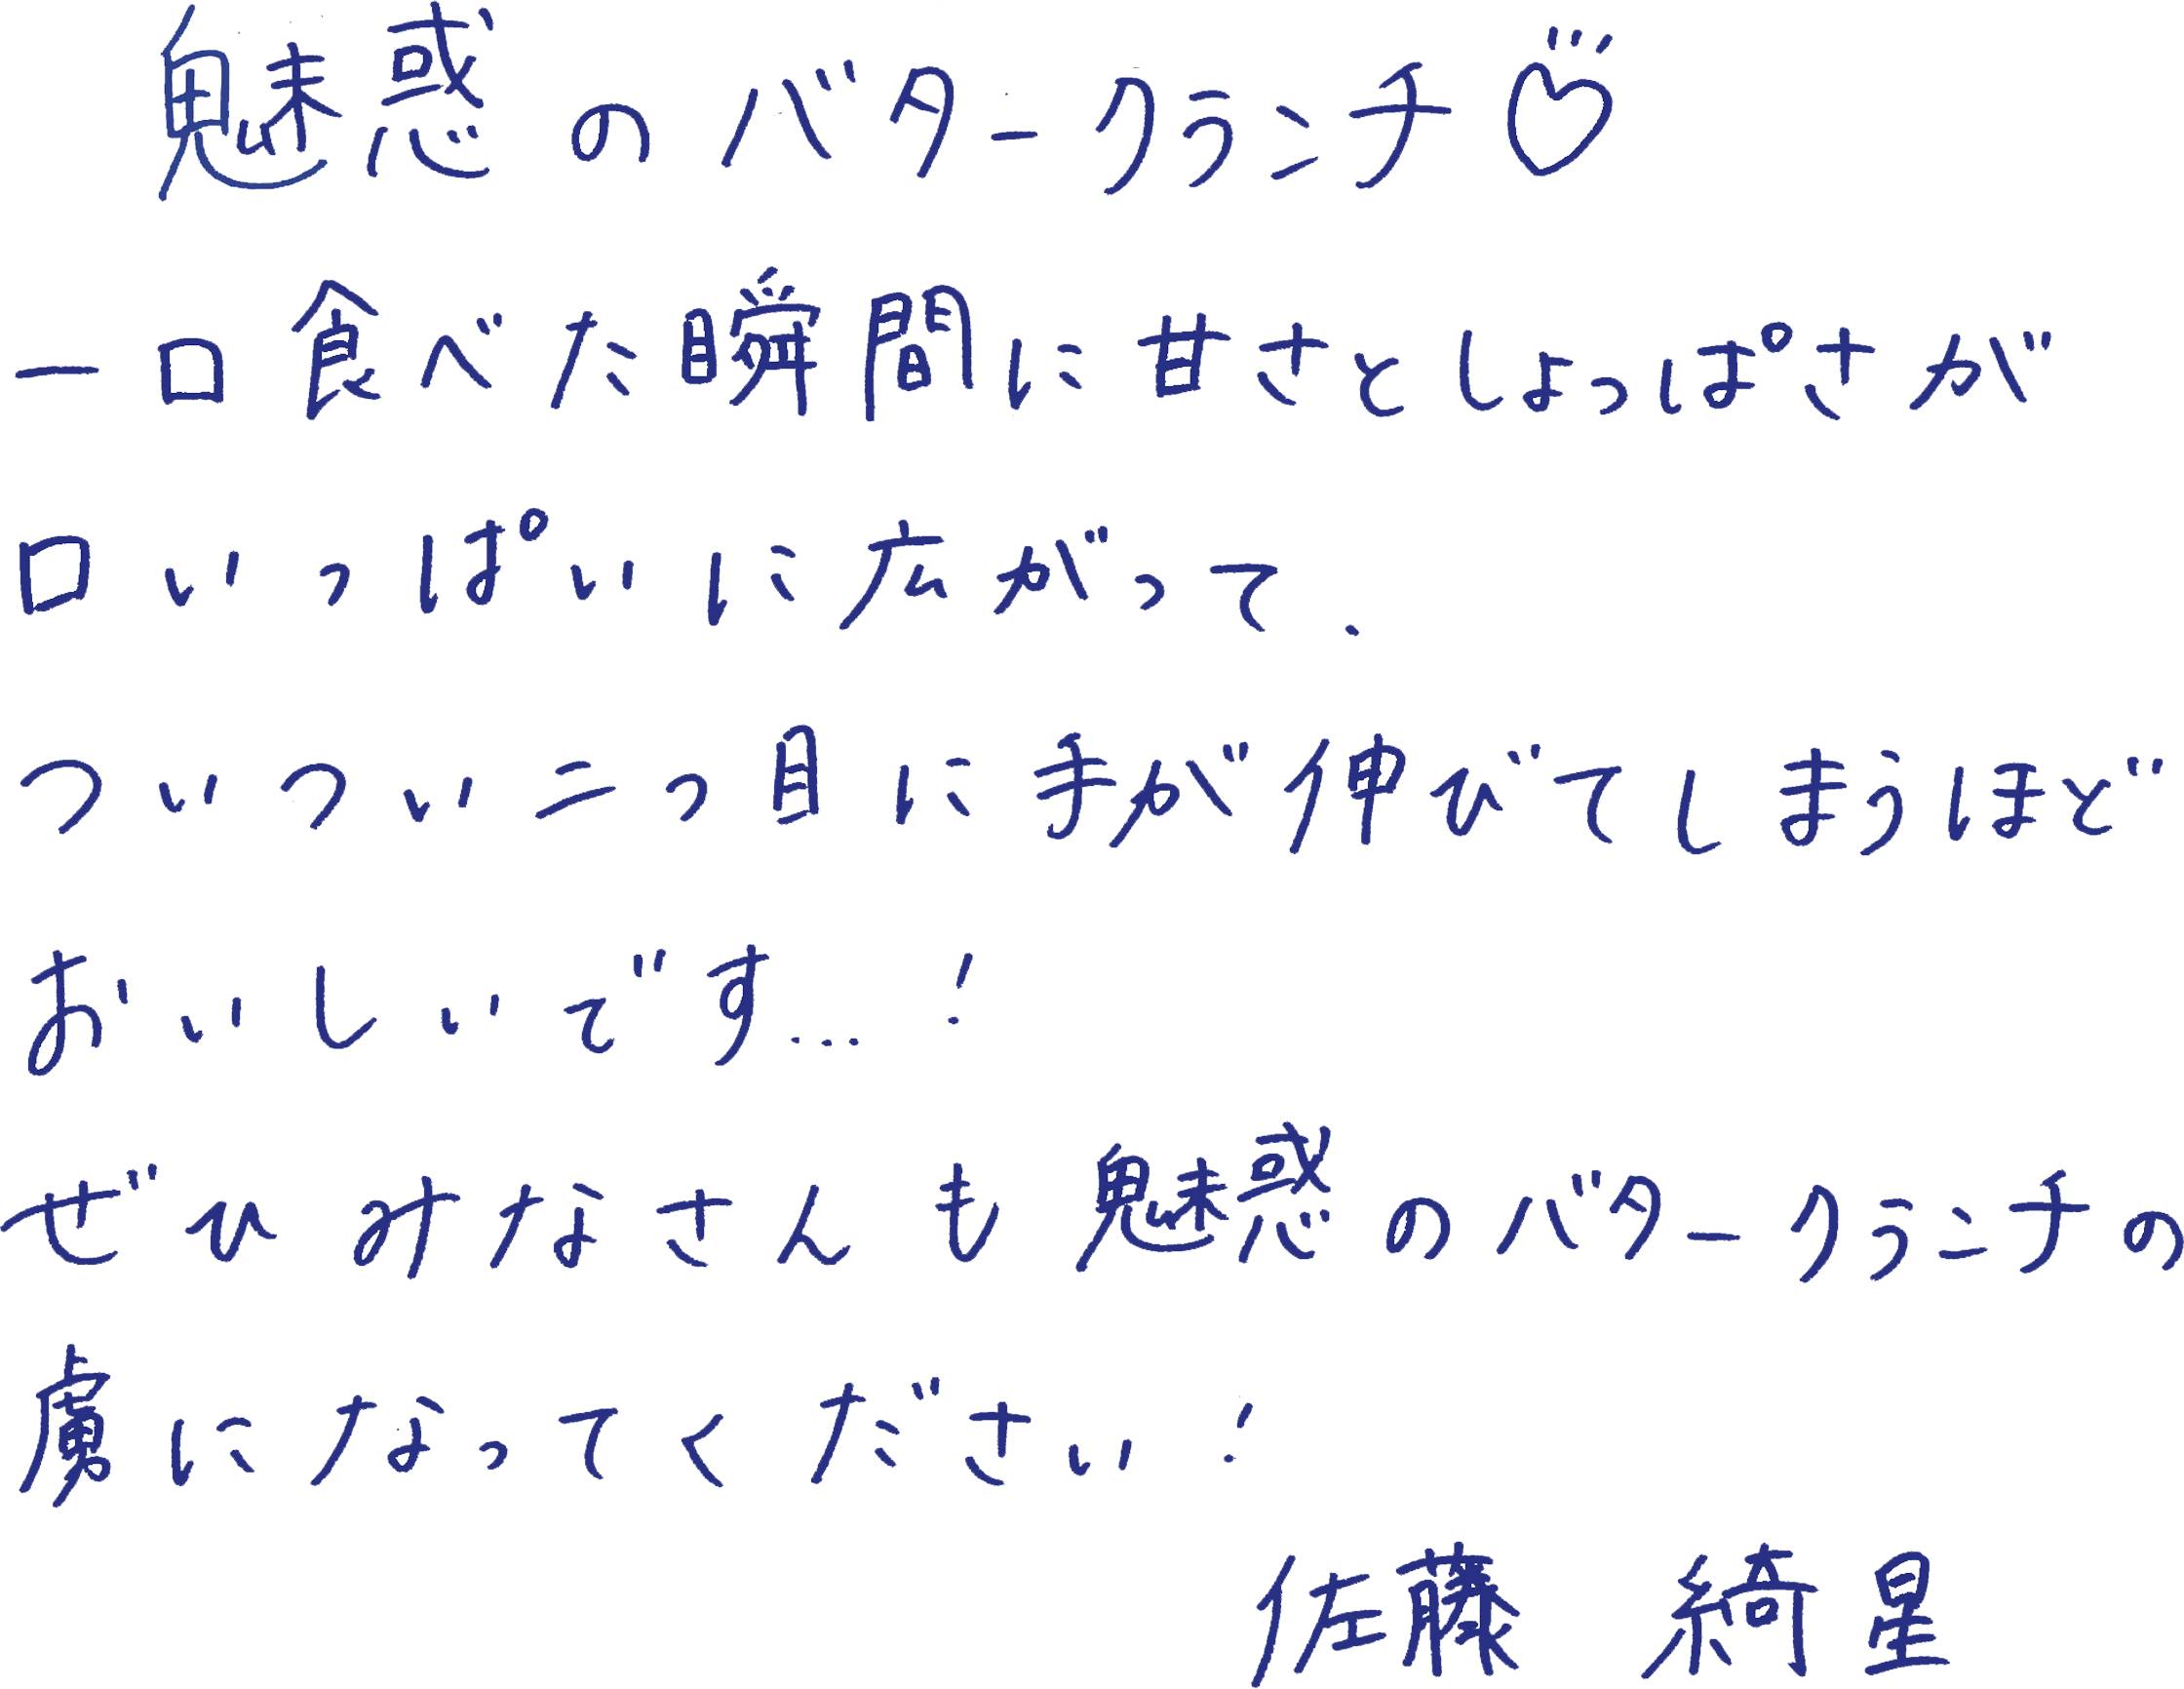 魅惑のバタークランチ♡
一口食べた瞬間に甘さとしょっぱさが
口いっぱいに広がって、
ついつい二つ目に手が伸びてしまうほど
おいしいです...!
ぜひみなさんも魅惑のバタークランチの
虜になってください!
佐藤 綺星